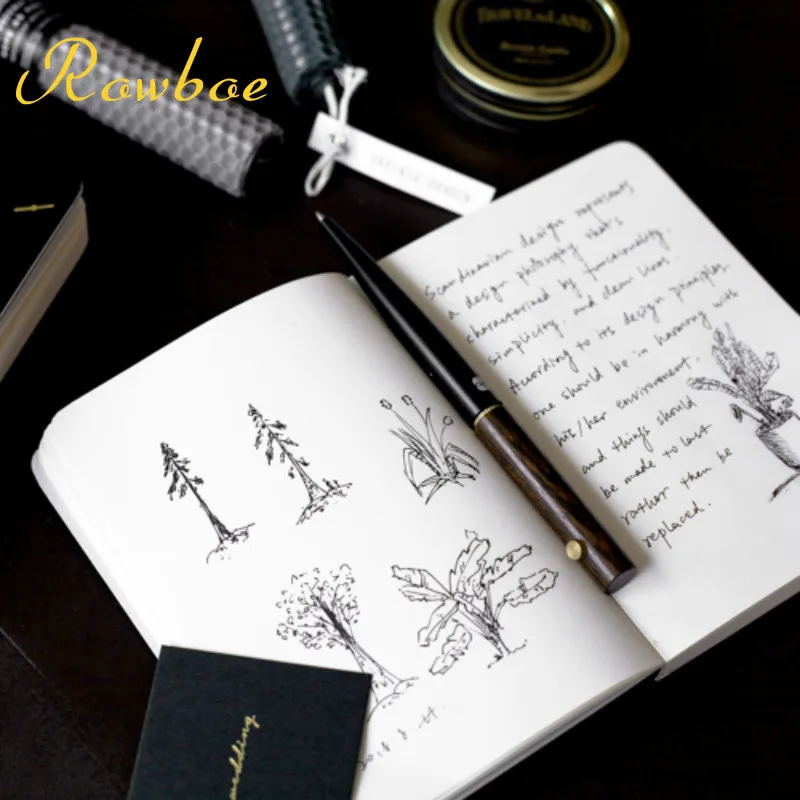 Rowboe
TRAVEL & LAND
Scandinavian design represents
a design philosophy that's
characterized by funcionality,
simplicity, and clean lines.
According to its design principles,
one should be in harmony with
his/her environment,
and things should
be made to last
rather then be
replaced.
wedding